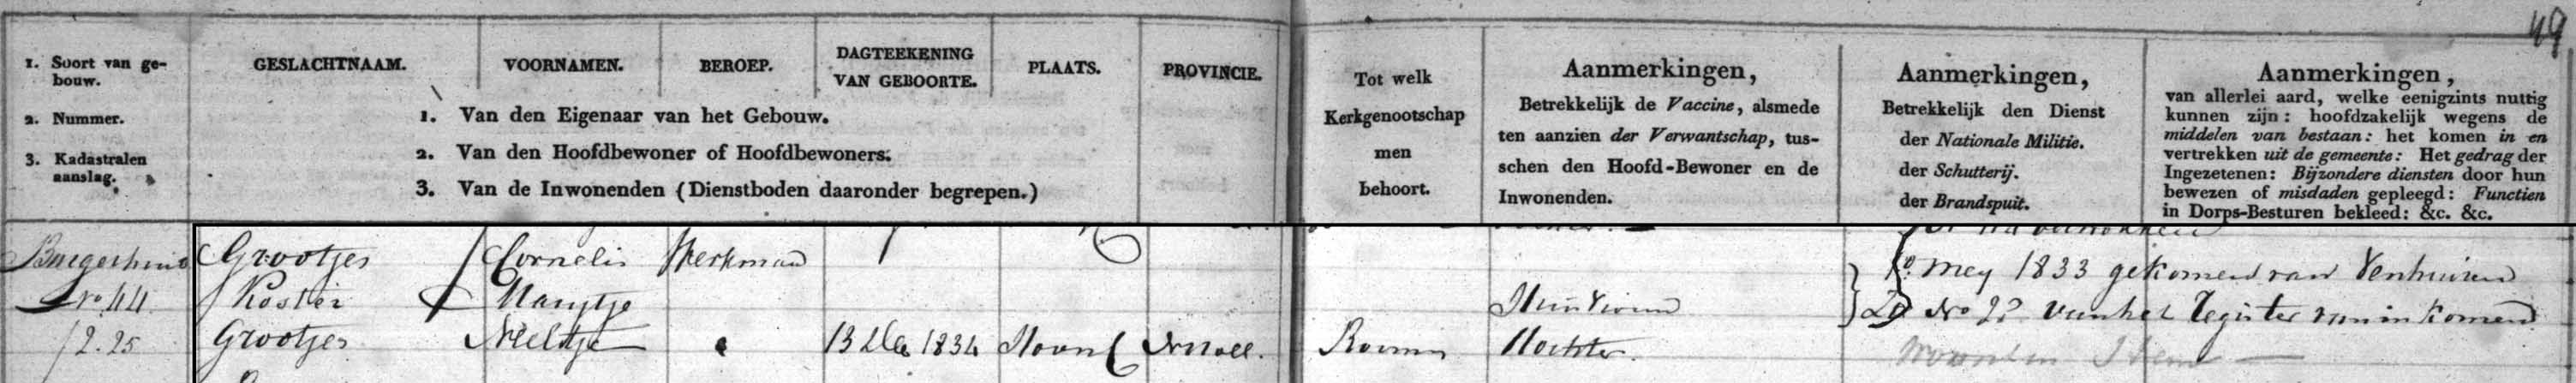 49
1. Soort van ge-
bouw.
2. Nummer.
3. Kadastralen
aanslag.
GESLACHTNAAM. VOORNAMEN. BEROEP. DAGTEEKENING
VAN GEBOORTE. PLAATS. PROVINCIE.
1. Van den Eigenaar van het Gebouw.
2. Van den Hoofdbewoner of Hoofdbewoners.
3. Van de Inwonenden (Dienstboden daaronder begrepen.)
Tot welk
Kerkgenootschap
men
behoort.
Aanmerkingen,
Betrekkelijk de Vaccine, alsmede
ten aanzien der Verwantschap, tus-
schen den Hoofd-Bewoner en de
Inwonenden.
Aanmerkingen,
Betrekkelijk den Dienst
der Nationale Militie.
der Schutterij.
der Brandspuit.
Aanmerkingen,
van allerlei aard, welke eenigzints nuttig
kunnen zijn: hoofdzakelijk wegens de
middelen van bestaan: het komen in en
vertrekken uit de gemeente: Het gedrag der
Ingezetenen: Bijzondere diensten door hun
bewezen of misdaden gepleegd: Functien
in Dorps-Besturen bekleed: &c. &c.
Burgerhuis Grootjes Cornelis Werkman 1o. Mey 1833 gekomen van Venhuizen
No 44 Koster Marijtje Huisvrouw No 22 van het Register van inkomen
12.25 Grootjes Neeltje 13 1834 Hoorn Nrholl. Rooms Dochter